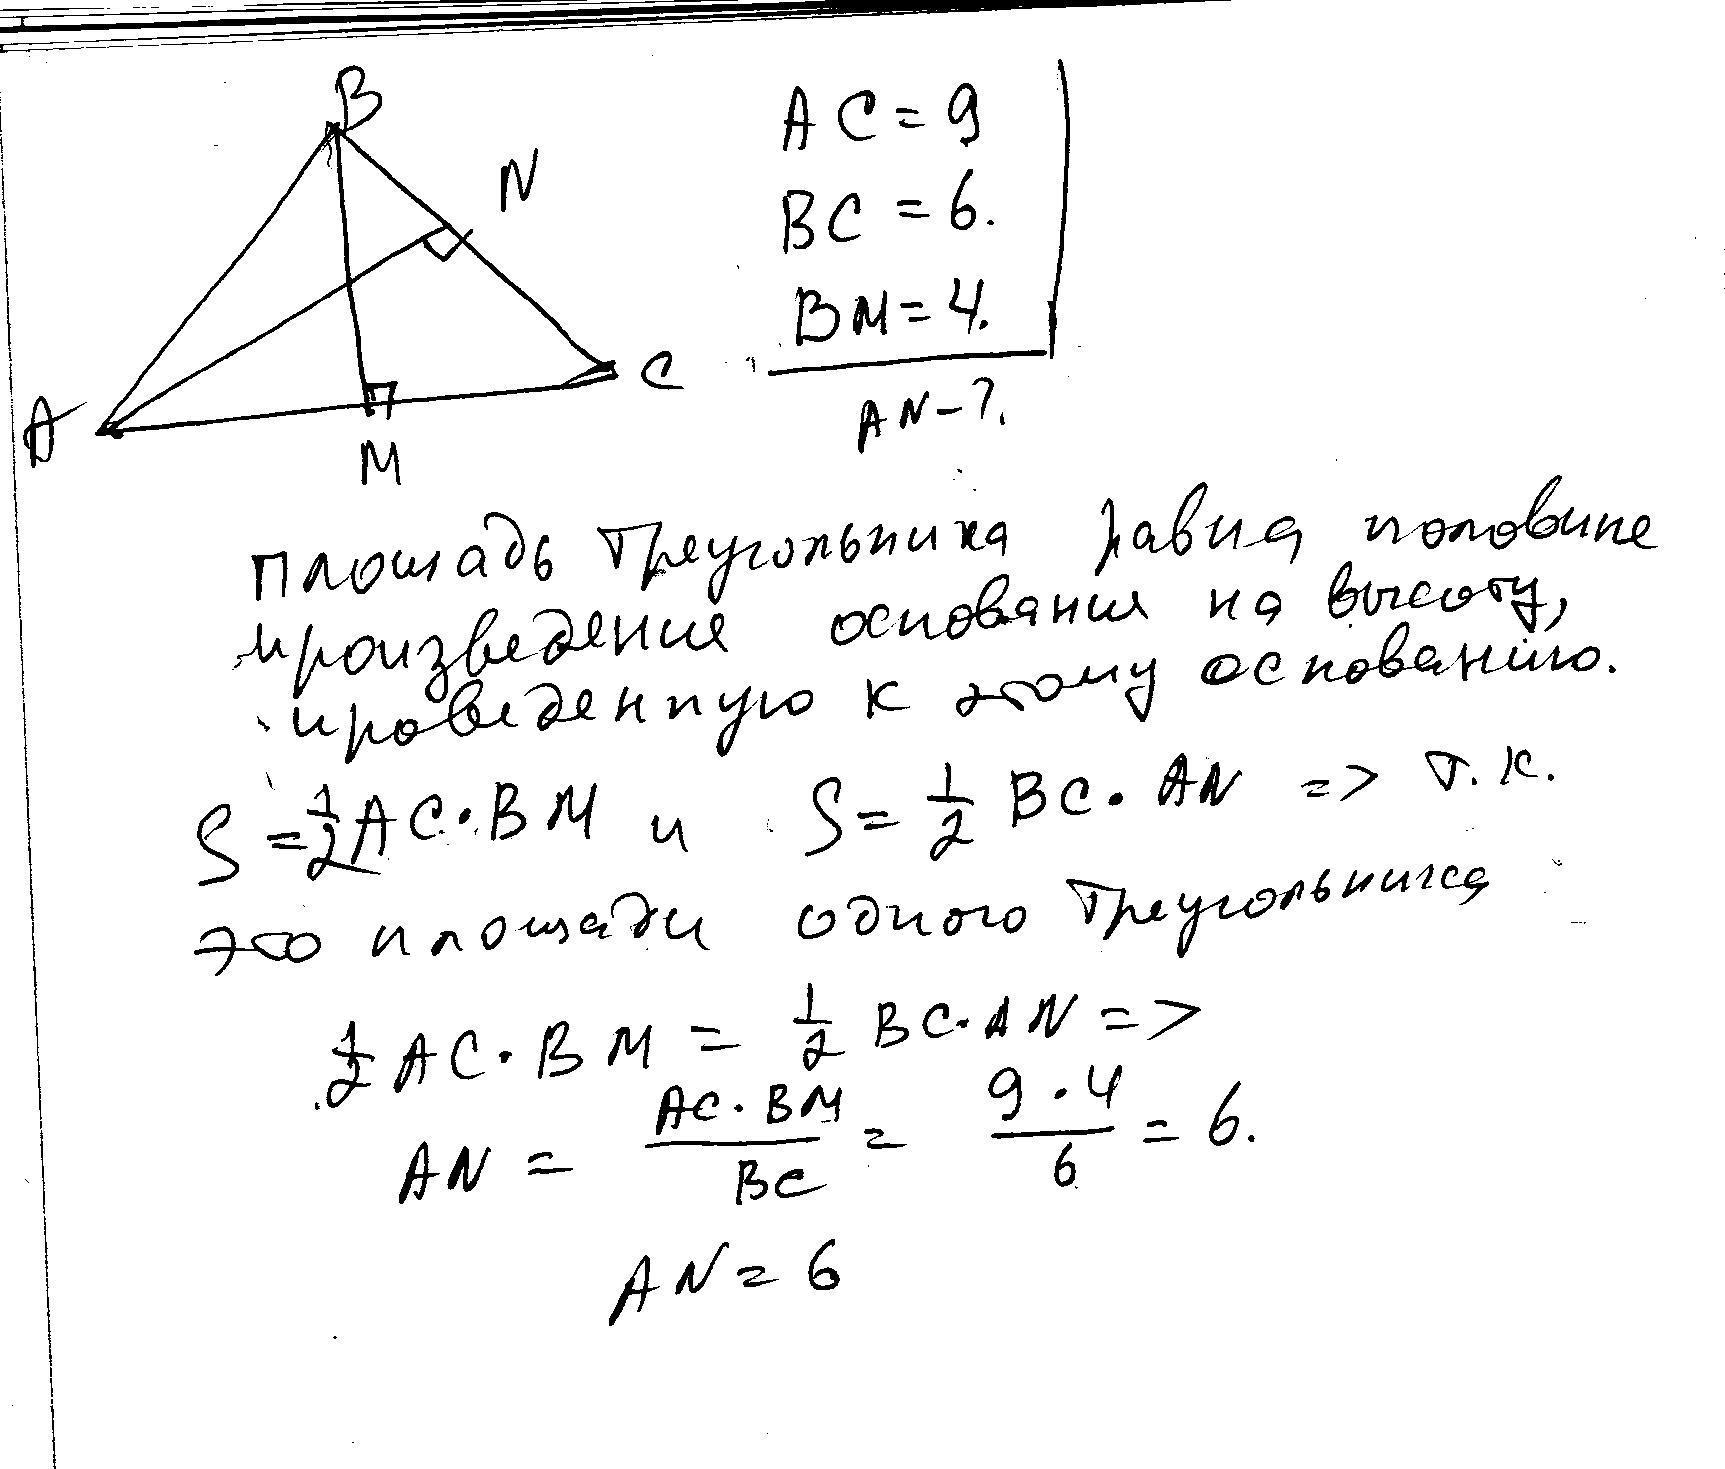 B
N
A
M
C
AC = 9
BC = 6.
BM = 4.
AN - ?.
площадь треугольника равна половине
произведения основания на высоту,
проведенную к этому основанию.
S = 1/2 AC · BM и S = 1/2 BC · AN => т.к.
это площади одного треугольника
1/2 AC · BM = 1/2 BC · AN =>
AN = AC · BM / BC = 9 · 4 / 6 = 6.
AN = 6